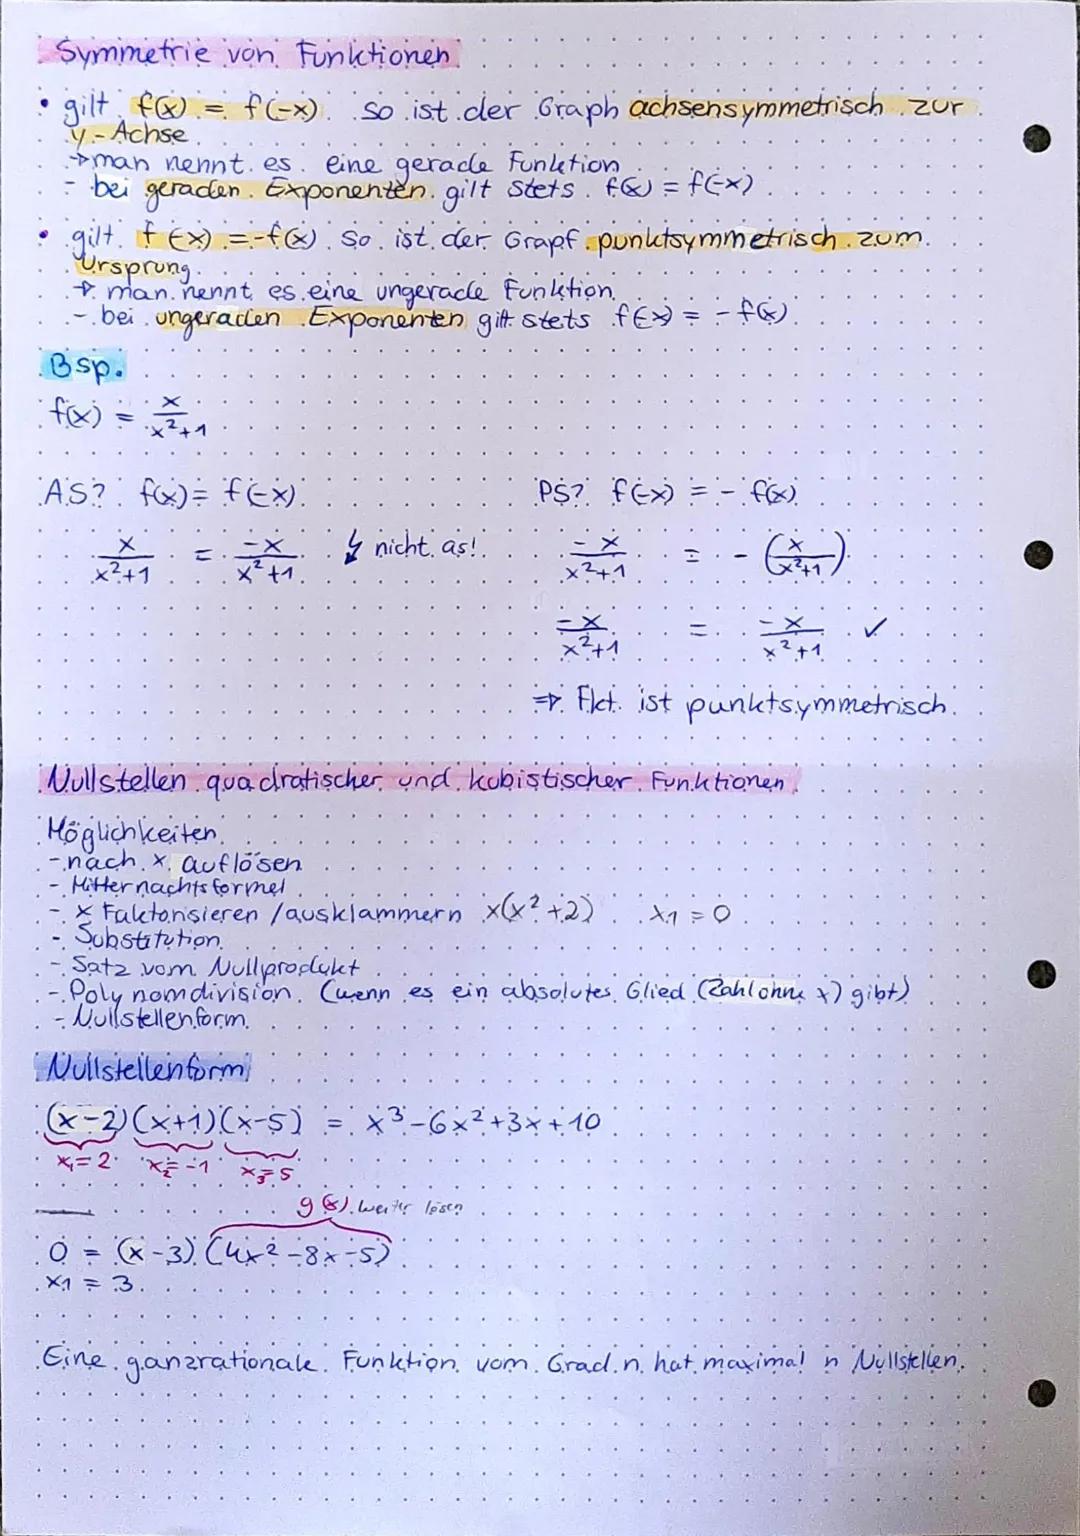 Symmetrie von Funktionen
• gilt f(x) = f(-x) so ist der Graph achsensymmetrisch zur
y-Achse
→ man nennt es eine gerade Funktion
- bei geraden Exponenten gilt stets f(x) = f(-x)
• gilt f(-x) = -f(x) so ist der Grapf punktsymmetrisch zum
Ursprung
→ man nennt es eine ungerade Funktion
- bei ungeraden Exponenten gilt stets f(-x) = - f(x)
Bsp.
f(x) = x/(x²+1)
AS? f(x) = f(-x)
x/(x²+1) = -x/(x²+1) ↯ nicht as!
PS? f(-x) = - f(x)
-x/(x²+1) = - (x/(x²+1))
-x/(x²+1) = -x/(x²+1) ✓
⇒ Fkt. ist punktsymmetrisch
Nullstellen quadratischer und kubistischer Funktionen
Möglichkeiten
- nach x auflösen
- Mitternachtsformel
- x Faktorisieren / ausklammern x(x²+2) x₁ = 0
- Substitution
- Satz vom Nullprodukt
- Polynomdivision (wenn es ein absolutes Glied (Zahl ohne x) gibt)
- Nullstellenform
Nullstellenform
(x-2)(x+1)(x-5) = x³-6x²+3x+10
x₁=2 x₂=-1 x₃=5
g(x) weiter lösen
0 = (x-3) (4x²-8x-5)
x₁ = 3
Eine ganzrationale Funktion vom Grad n hat maximal n Nullstellen.